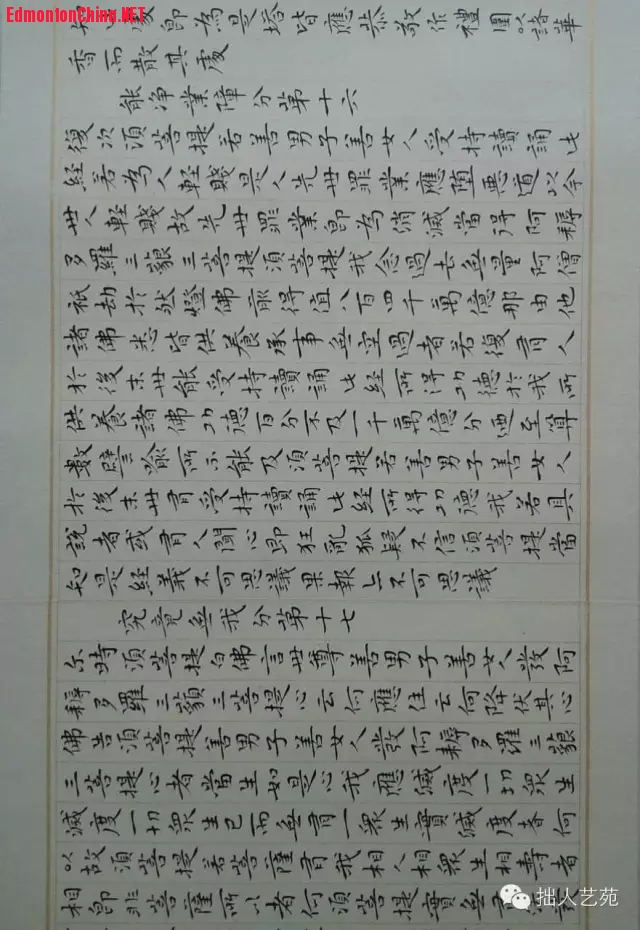 EdmontonChina.NET
處即為是塔皆應恭敬作禮圍以諸華
香而散其處
能净業障分第十六
復次須菩提若善男子善女人受持讀誦此
經若為人輕賤是人先世罪業應墮惡道以今
世人輕賤故先世罪業即為消滅當得阿耨
多羅三藐三菩提須菩提我念過去無量阿僧
祇劫於然燈佛前得值八百四千萬億那由他
諸佛悉皆供養承事無空過者若復有人
於後末世能受持讀誦此經所得功德於我所
供養諸佛功德百分不及一千萬億分迺至算
數譬喻所不能及須菩提若善男子善女人
於後末世有受持讀誦此經所得功德我若具
說者或有人聞心即狂亂狐疑不信須菩提當
知是經義不可思議果報亦不可思議
究竟無我分第十七
尔時須菩提白佛言世尊善男子善女人發阿
耨多羅三藐三菩提心云何應住云何降伏其心
佛告須菩提善男子善女人發阿耨多羅三藐
三菩提心者當生如是心我應滅度一切衆生
滅度一切衆生已而無有一衆生實滅度者何
以故須菩提若菩薩有我相人相衆生相壽者
相即非菩薩所以者何須菩提實無有
拙人艺苑